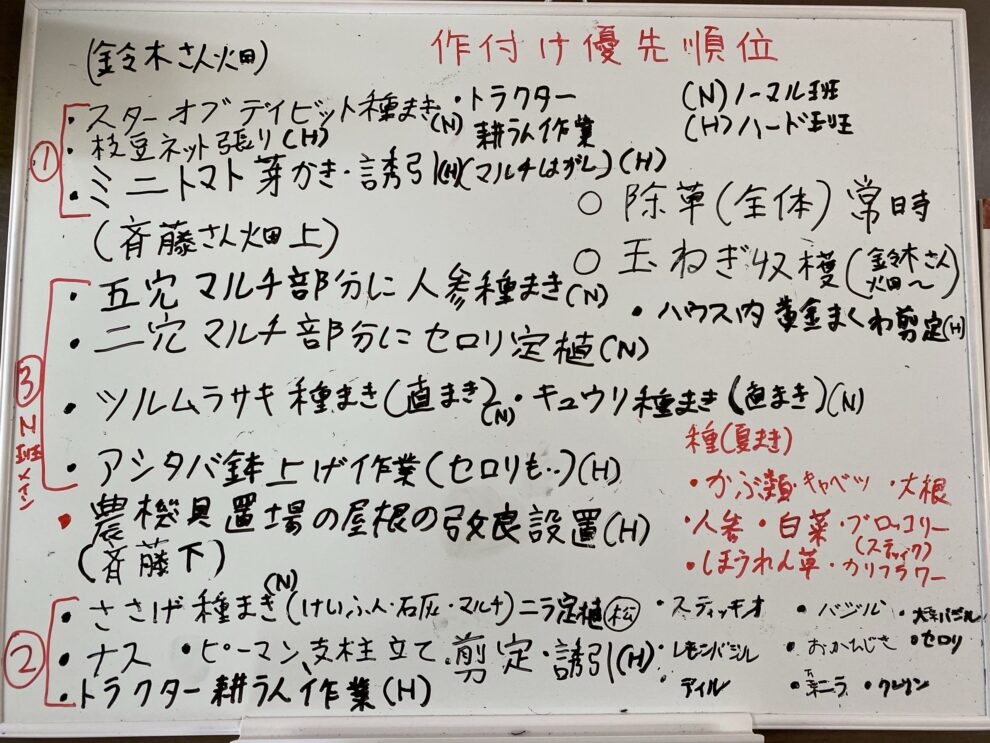 作付け優先順位
(鈴木さん畑)
(N)ノーマル班
(H)ハード班
①
・スターオブデイビット種まき(N)・トラクター耕うん作業
・枝豆ネット張り(H)
・ミニトマト芽かき・誘引(H)(マルチはがし)(H)
○除草(全体)常時
○玉ねぎ収穫(鈴木さん畑〜)
・ハウス内黄金まくわ剪定(H)
(斉藤さん畑上)
③N班メイン
・五穴マルチ部分に人参種まき(N)
・二穴マルチ部分にセロリ定植(N)
・ツルムラサキ種まき(直まき)(N)・キュウリ種まき(直まき)(N)
・アシタバ鉢上げ作業(セロリも‥)(H)
・農機具置場の屋根の改良設置(H)
種(夏まき)
・かぶ類・キャベツ・大根
・人参・白菜・ブロッコリー
(スティック)
・ほうれん草・カリフラワー
(斉藤下)
②
・ささげ種まき(N)(けいふん・石灰・マルチ)ニラ定植(松)
・ナス・ピーマン、支柱立て、剪定・誘引(H)
・トラクター耕うん作業(H)
・スティッキオ・バジル・バジル
・レモンバジル・おかひじき・セロリ
・ディル・ニラ